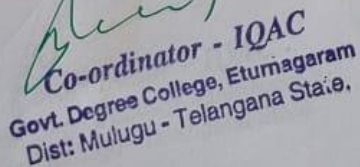 Co-ordinator - IQAC
Govt. Degree College, Eturnagaram
Dist: Mulugu - Telangana State.